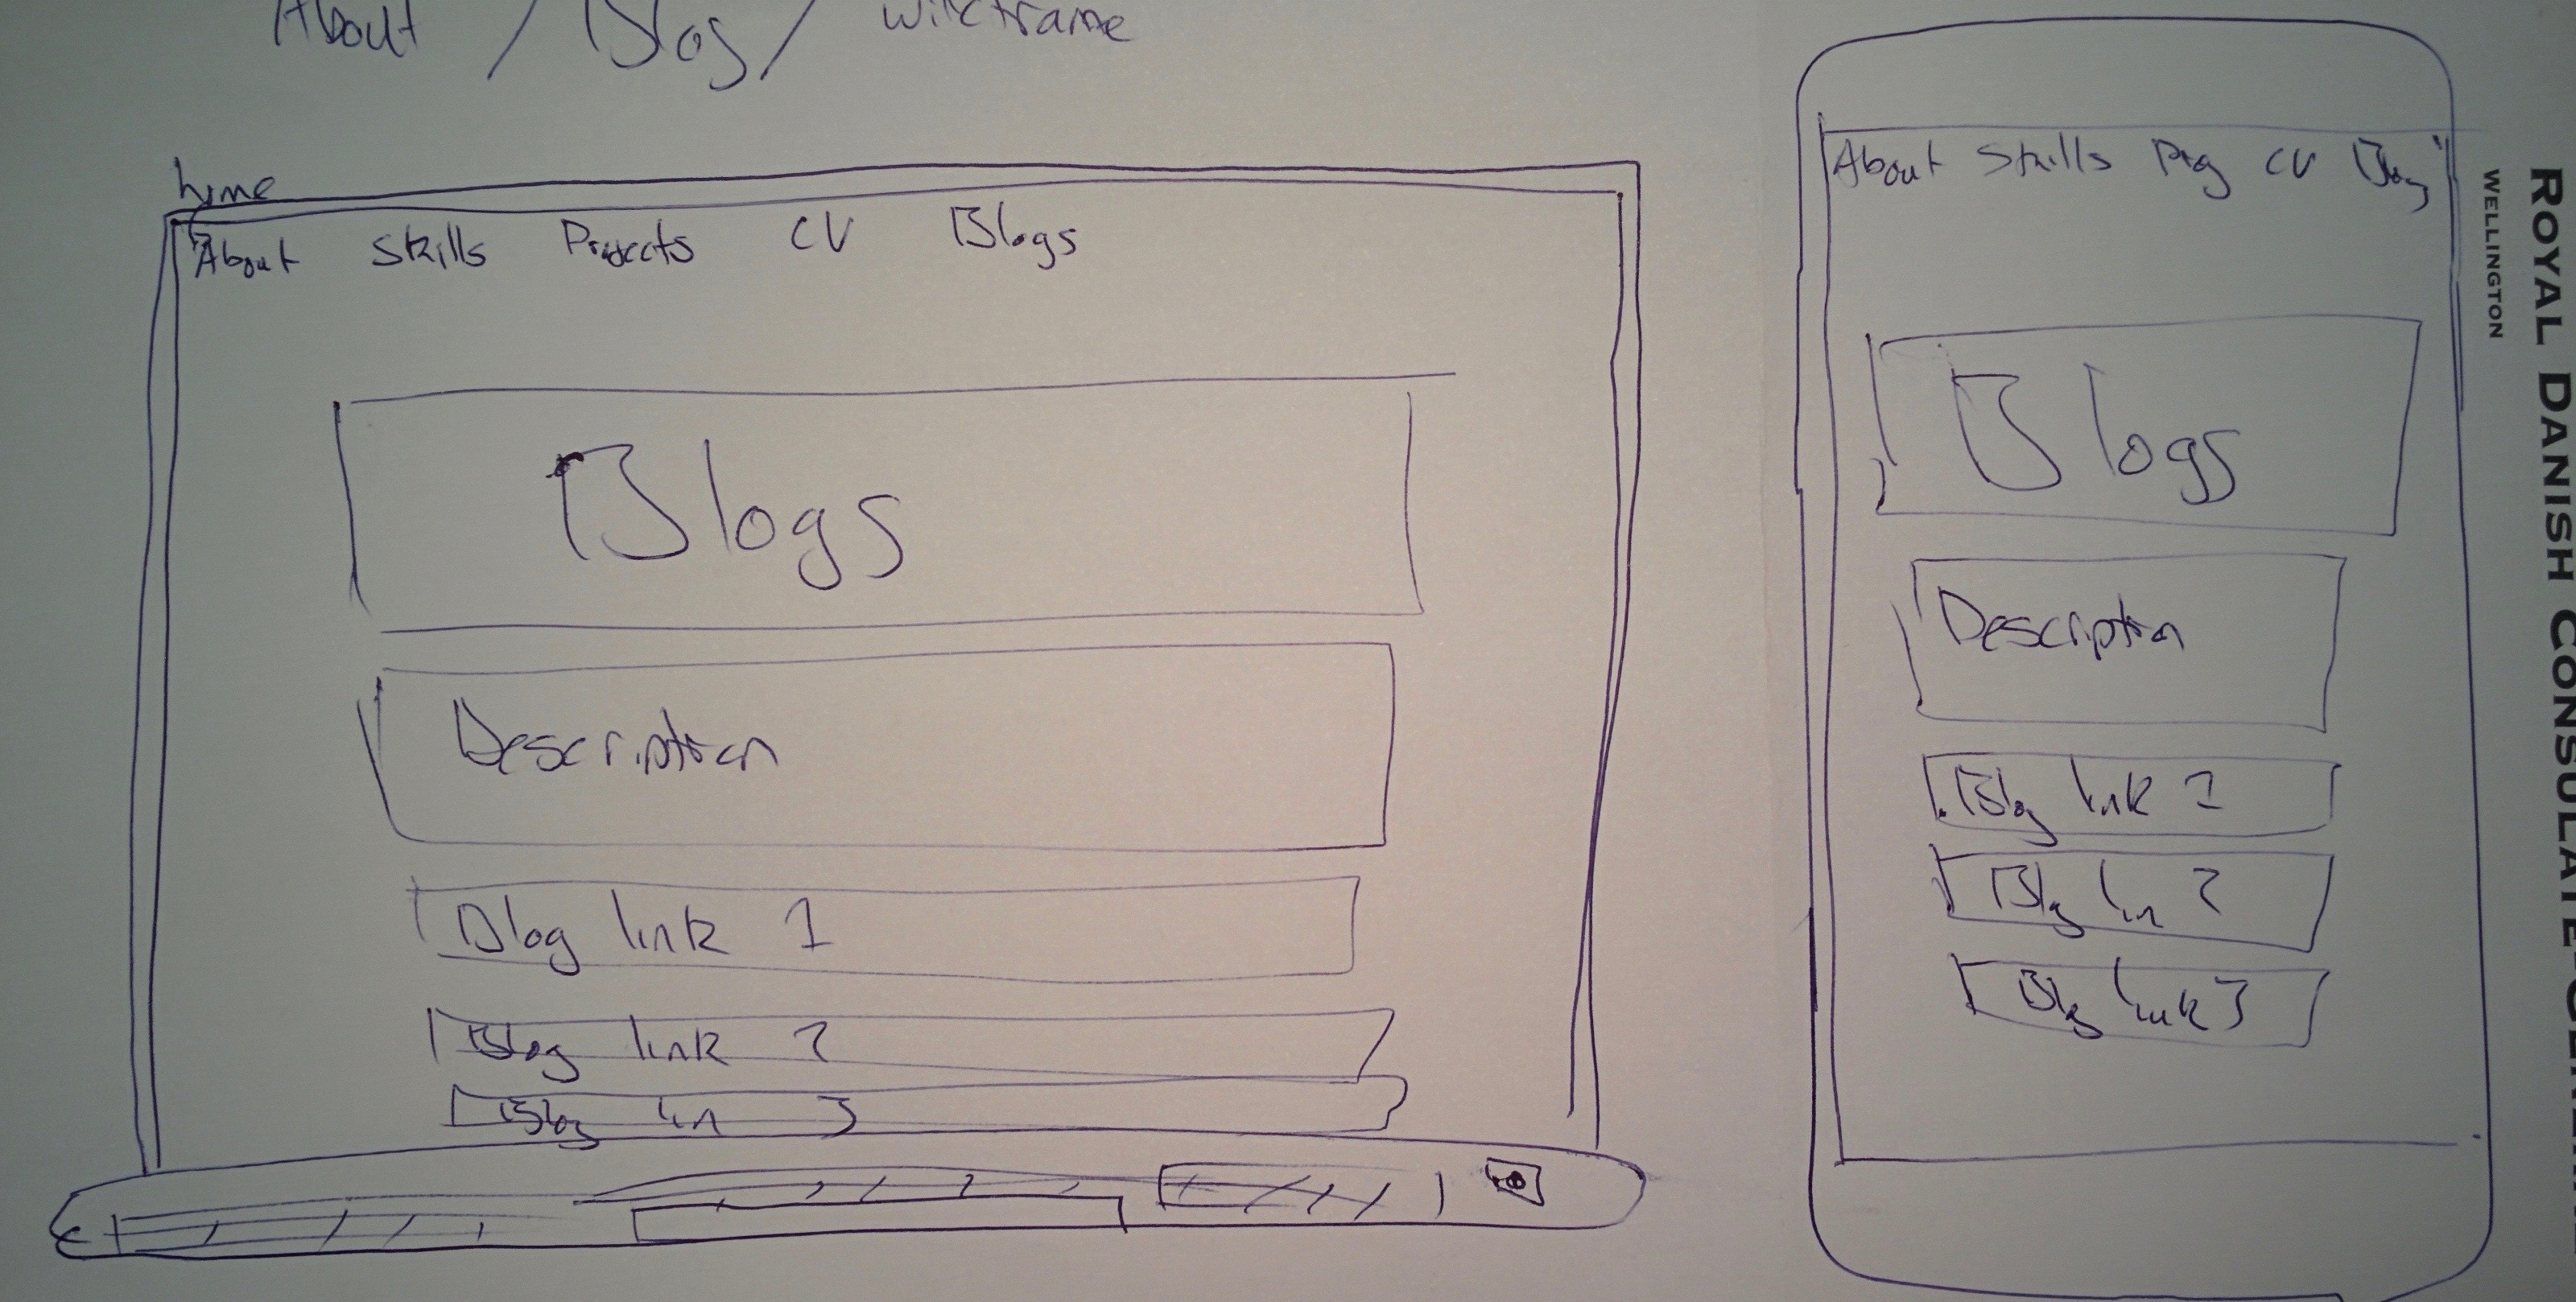 About / Blog / wireframe
home
About Skills Projects CV Blogs
Blogs
Description
Blog link 1
Blog link 2
Blog lin 3
About Skills CV Blog
Blogs
Description
Blog link 1
Blog lin 2
Blog link 3
ROYAL DANISH CONSULATE
WELLINGTON